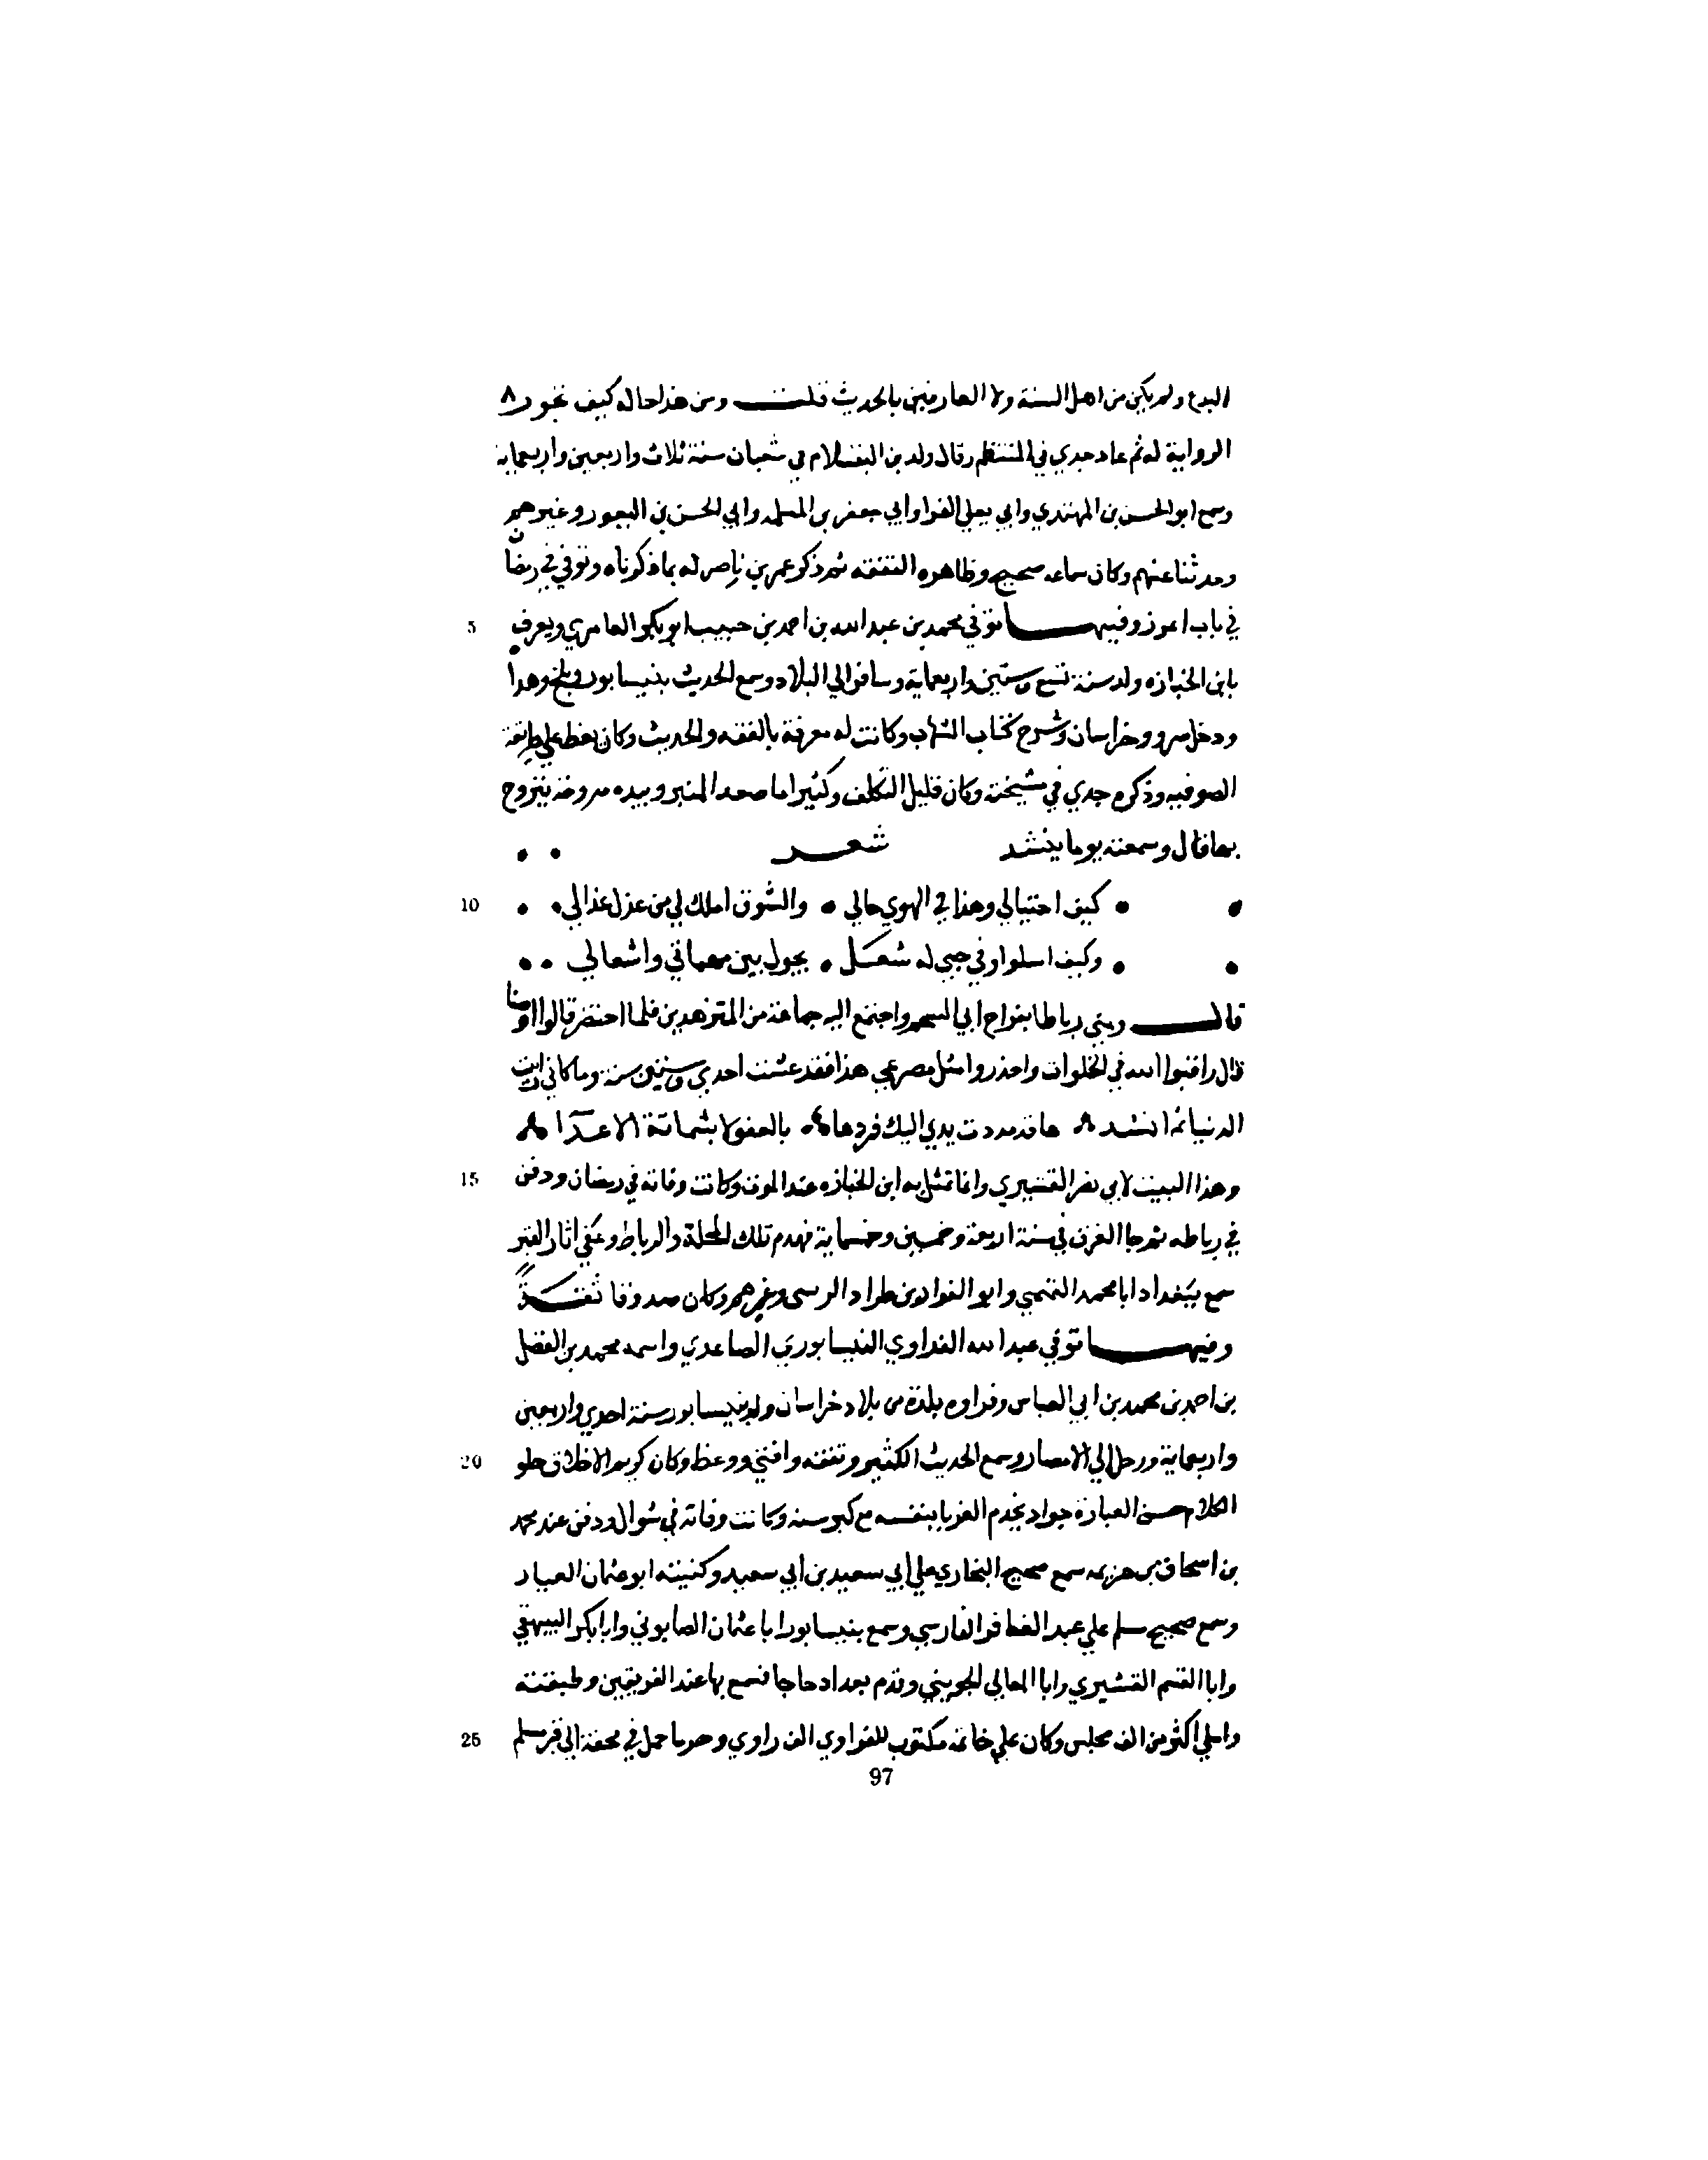 البدع ولم يكن من اهل السنة ولا العارفين بالحديث قلت ومن هذا حاله كيف تجوز
الرواية له ثم عاد جدي في المنتظم وقال ولد بن السلام في شعبان سنة ثلاث واربعين واربعماية
وسمع ابو الحسن بن المهتدي وابي يعلي الفرا وابي جعفر بن المسلمه وابي الحسن بن النقور وغيرهم
وحدثنا عنهم وكان سماعه صحيح وظاهره الثقه ثم ذكر عمر بن ناصر له بما ذكرناه وتوفي في رمضان
في باب وفيها توفي محمد بن عبد الله بن احمد بن حبيب ابو بكر العامري ويعرف 5
بابن الخبازه ولد سنة تسع وستين واربعماية وسافر الي البلاد وسمع الحديث بنيسابور وبلخ وهراه
ودخل مرو وخراسان وشرح كتاب الشهاب وكانت له معرفة بالفقه والحديث وكان يعظ علي طريقة
الصوفيه وذكره جدي في مشيخته وكان قليل التكلف وكثيرا ما صعد المنبر وبيده مروحة يتروح
بها قال وسمعته يوما ينشد شعر
كيف احتيالي وهذا في الهوي حالي والشوق املك لي من عزل عذالي 10
وكيف اسلوا وفي حبي له شعل يجول بين مهماتي واشعالي
قال وبني رباطا بقراح ابي الشحم واجتمع اليه جماعة من المتزهدين فلما احتضر قالوا اوصنا
قال راقبوا الله في الخلوات واحذروا مثل مصرعي هذا فقد عشت احدي وستين سنة وما كاني رايت
الدنيا ثم انشد ها قد مددت يدي اليك فردها بالعفو لا بشماتة الاعدا
وهذا البيت لابي نصر القشيري وانما تمثل به ابن الخبازه عند الموت وكانت وفاته في رمضان ودفن 15
في رباطه ثم جا الغرق في سنة اربعة وخمسين وخمساية فهدم تلك المحلة والرباط وعفي اثار القبر
سمع ببغداد ابا محمد التميمي وابو الفوارس طراد الرسى وغيرهم وكان صدوقا ثقة
وفيها توفي عبد الله الفراوي النيسابوري الصاعدي واسمه محمد بن الفضل
بن احمد بن محمد بن ابي العباس وفراوه بلدة من بلاد خراسان ولد بنيسابور سنة احدي واربعين
واربعماية ورحل الي الامصار وسمع الحديث الكثير وتفقه وافتي ووعظ وكان كريم الاخلاق حلو 20
الكلام حسن العبارة جواد يخدم الغربا بنفسه مع كبر سنه وكانت وفاته في شوال ودفن عند محمد
بن اسحاق بن خزيمه سمع صحيح البخاري علي ابي سعيد بن ابي سعيد وكنيته ابو عثمان العيار
وسمع صحيح مسلم علي عبد الغافر الفارسي وسمع بنيسابور ابا عثمان الصابوني وابا بكر البيهقي
وابا القسم القشيري وابا المعالي الجويني وقدم بغداد حاجا فسمع بها عند الفريقين وطبقته
واملي اكثر من الف مجلس وكان علي خاتمه مكتوب للفراوي الف راوي وهو ما حمل في محفة الي قبر مسلم 25
97